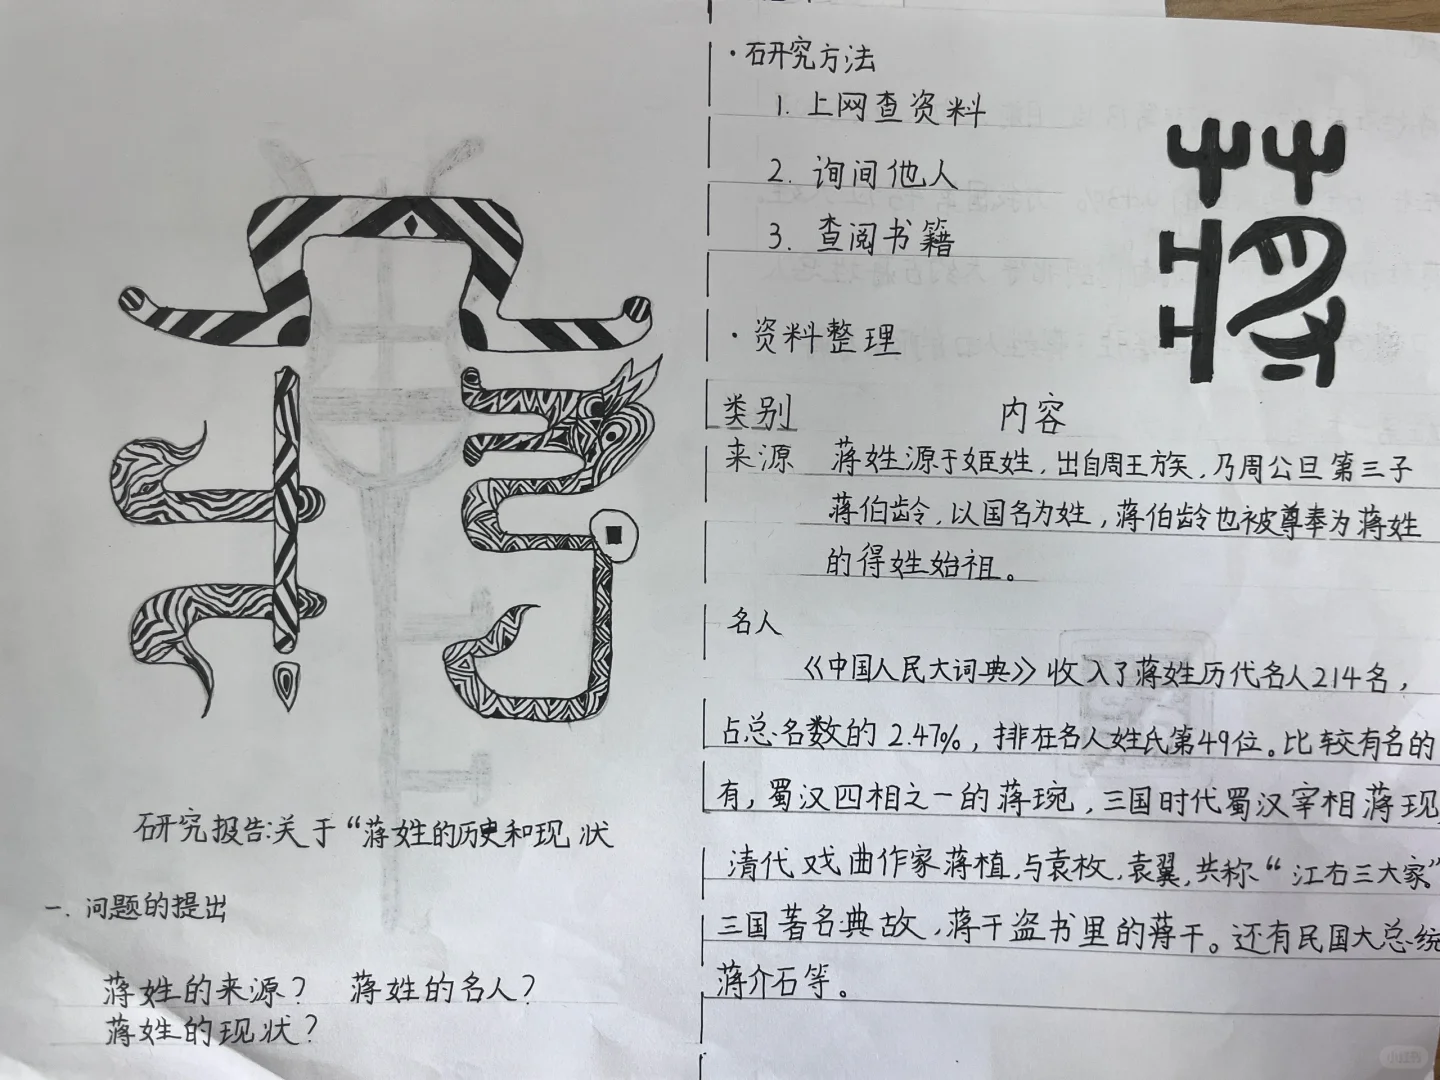 蒋
研究报告:关于“蒋姓的历史和现状
一.问题的提出
蒋姓的来源? 蒋姓的名人?
蒋姓的现状?
·研究方法
1.上网查资料
2.询间他人
3.查阅书籍
蒋
·资料整理
类别 内容
来源 蒋姓源于姬姓,出自周王族,乃周公旦第三子
蒋伯龄,以国名为姓,蒋伯龄也被尊奉为蒋姓
的得姓始祖。
名人
《中国人民大词典》收入了蒋姓历代名人214名,
占总名数的2.47%,排在名人姓氏第49位。比较有名的
有,蜀汉四相之一的蒋琬,三国时代蜀汉宰相蒋现,
清代戏曲作家蒋植,与袁枚,袁翼,共称“江右三大家”
三国著名典故,蒋干盗书里的蒋干。还有民国大总统
蒋介石等。
小红书